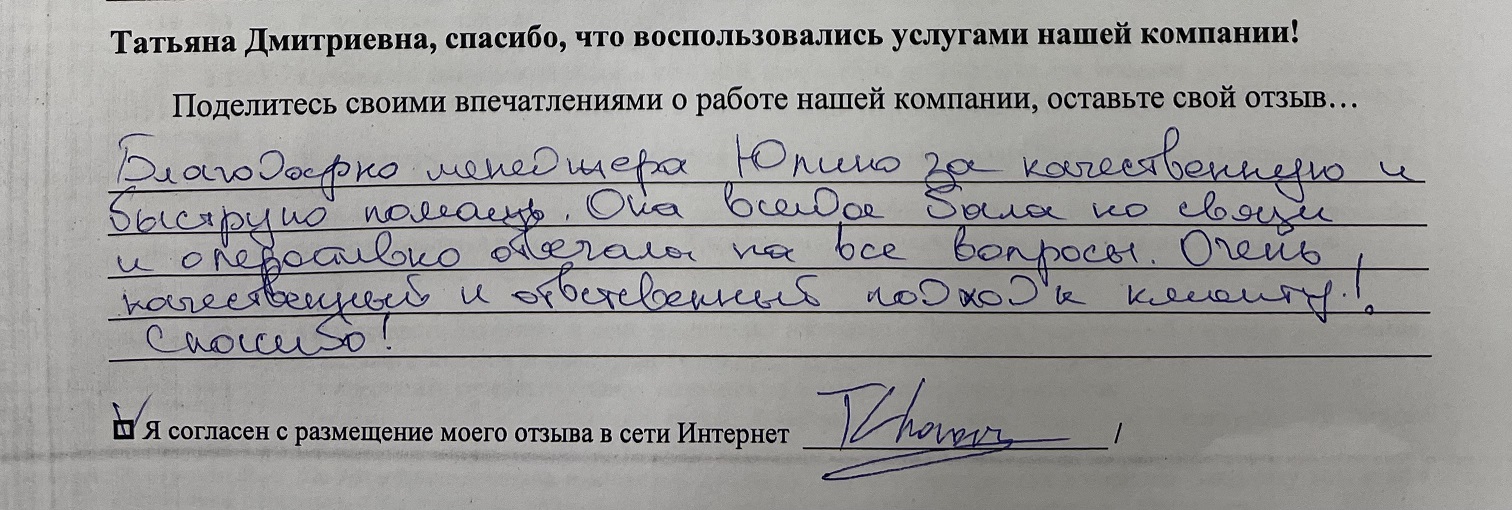 Татьяна Дмитриевна, спасибо, что воспользовались услугами нашей компании!
Поделитесь своими впечатлениями о работе нашей компании, оставьте свой отзыв…
Благодарю менеджера за качественную и
быструю помощь. Она всегда была на связи
и оперативно отвечала на все вопросы. Очень
качественный и ответственный подход к клиенту!
Спасибо!
Я согласен с размещение моего отзыва в сети Интернет